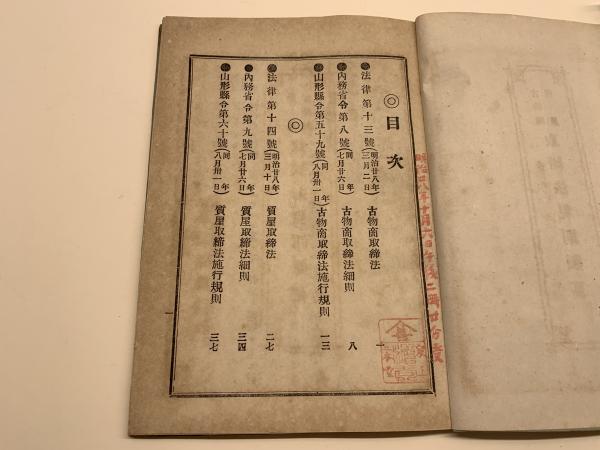 ◎目次
●法律第十三號(明治廿八年三月二日)古物商取締法 一
●內務省令第八號(同年七月廿六日)古物商取締法細則 八
●山形縣令第五十九號(同年八月卅一日)古物商取締法施行規則 一三
◎
●法律第十四號(明治廿八年三月十日)質屋取締法 二七
●內務省令第九號(同年七月廿六日)質屋取締法細則 三四
●山形縣令第六十號(同年八月卅一日)質屋取締法施行規則 三七
明治廿八年十月六日